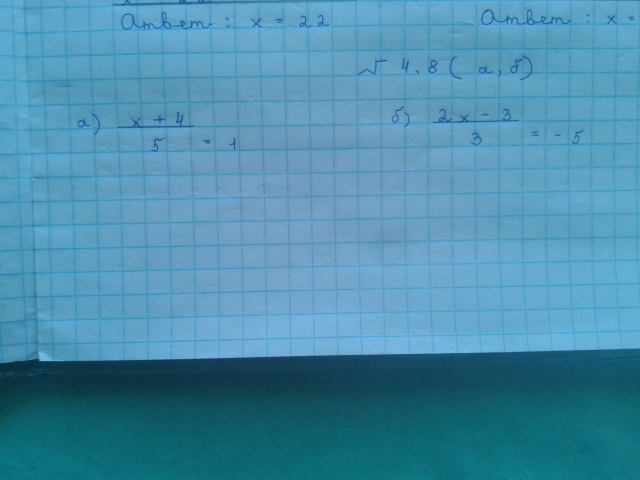 Ответ : x = 22
Ответ : x =
№ 4.8 ( а, б)
а) x + 4
5 = 1
б) 2x - 3
3 = - 5